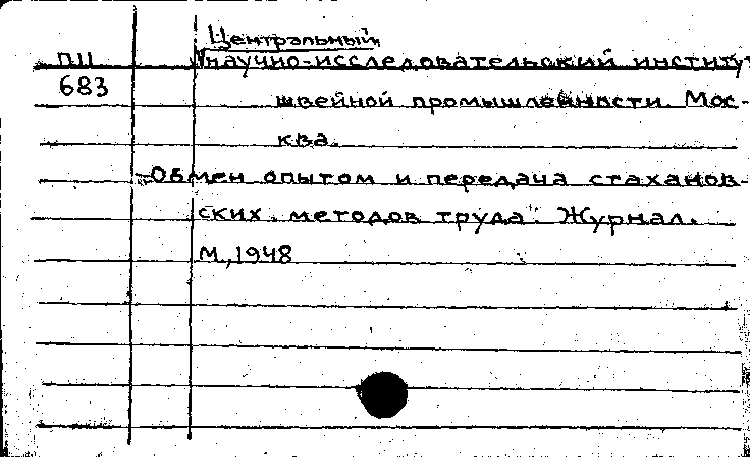 Центральный
ПЦ научно-исследовательский институт
683 швейной промышленности. Мос-
ква.
"Обмен опытом и передача стаханов-
ских методов труда". Журнал.
М, 1948